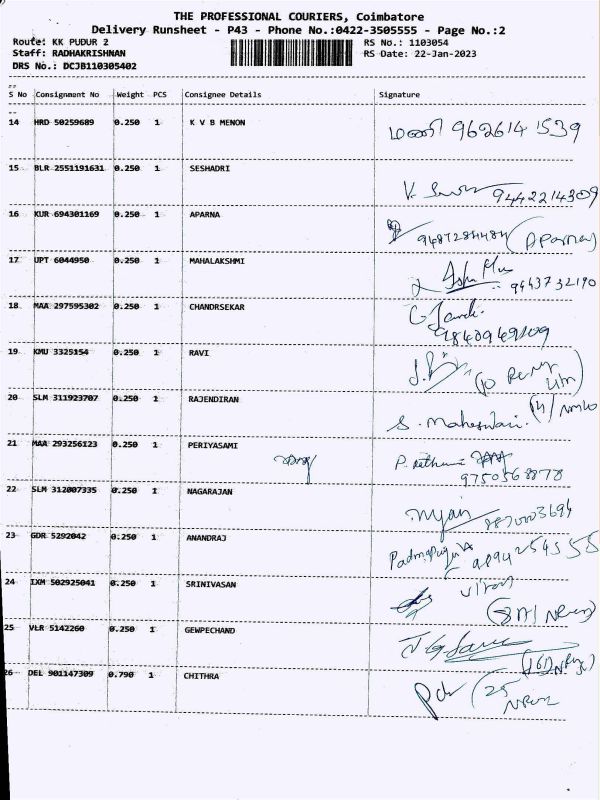 THE PROFESSIONAL COURIERS, Coimbatore
Delivery Runsheet - P43 - Phone No.:0422-3505555 - Page No.:2
Route: KK PUDUR 2 RS No.: 1103054
Staff: RADHAKRISHNAN RS Date: 22-Jan-2023
DRS No.: DCJB110305402
S No Consignment No Weight PCS Consignee Details Signature
14 HRD 50259689 0.250 1 K V B MENON மணி 9626141539
15 BLR 2551191631 0.250 1 SESHADRI
9442214309
16 KUR 694301169 0.250 1 APARNA
9487284484 (Aparna)
17 UPT 6044950 0.250 1 MAHALAKSHMI
9443732190
18 MAA 297595302 0.250 1 CHANDRSEKAR
19 KMU 3325154 0.250 1 RAVI
20 SLM 311923707 0.250 1 RAJENDIRAN
S. Maheswari.
21 MAA 293256123 0.250 1 PERIYASAMI
9750568878
22 SLM 312007335 0.250 1 NAGARAJAN
8870003694
23 GDR 5292042 0.250 1 ANANDRAJ
9894254555
24 IXM 502925041 0.250 1 SRINIVASAN
25 VLR 5142260 0.250 1 GEWPECHAND
26 DEL 901147309 0.790 1 CHITHRA
(25